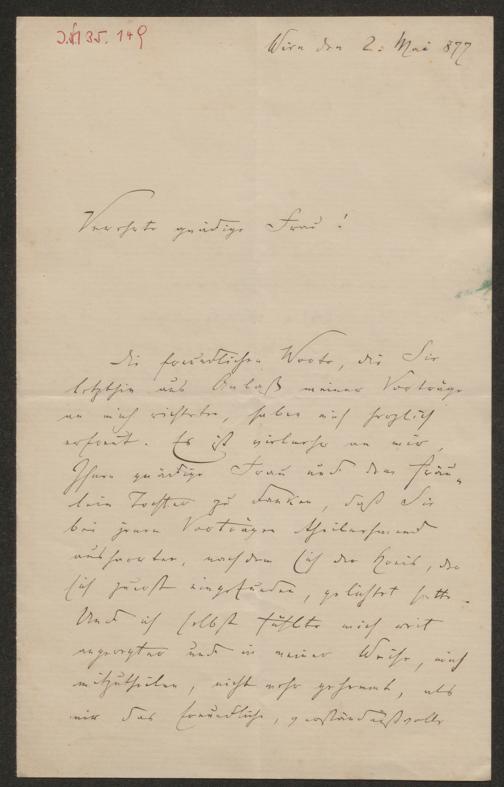 J.N. 35.149
Wien den 2. Mai 877
Verehrte gnädige Frau!
Die freundlichen Worte, die Sie
letzthin aus Anlaß meiner Vorträge
an mich richteten, haben mich herzlich
erfreut. Es ist vielmehr an mir,
Ihnen gnädige Frau und dem Fräu-
lein Tochter zu danken, daß Sie
bei jenen Vorträgen theilnehmend
ausharrten, nachdem sich der Kreis, der
sich zuerst eingefunden, gelichtet hatte.
Und ich selbst fühlte mich weit
angeregter und in meiner Weise, mich
mitzutheilen, nicht mehr gehemmt, als
mir das freundliche, verständnißvolle